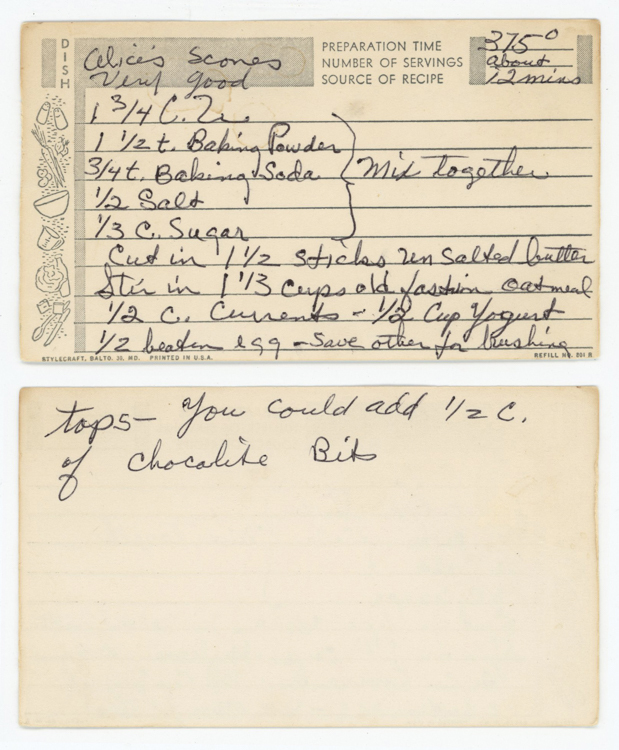 DISH
Alice's Scones
Very good
PREPARATION TIME
NUMBER OF SERVINGS
SOURCE OF RECIPE
375°
about
12 mins
1 3/4 C.
1 1/2 t. Baking Powder
3/4 t. Baking Soda
Mix together
1/2 Salt
1/3 C. Sugar
Cut in 1 1/2 sticks un salted butter
Stir in 1 1/3 cups old fashion oatmeal
1/2 C. Currents - 1/2 Cup Yogurt
1/2 beaten egg - save other for brushing
STYLECRAFT, BALTO. 30, MD. PRINTED IN U.S.A.
REFILL NO. 201 R
tops - You could add 1/2 C.
of chocalite Bits